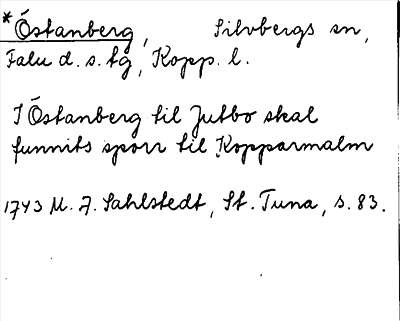 *Östanberg, Silvbergs sn,
Falu d. s. tg, Kopp. l.
I Östanberg til Jutbo skal
funnits sporr til Kopparmalm
1743 M. J. Sahlstedt, St. Tuna, s. 83.